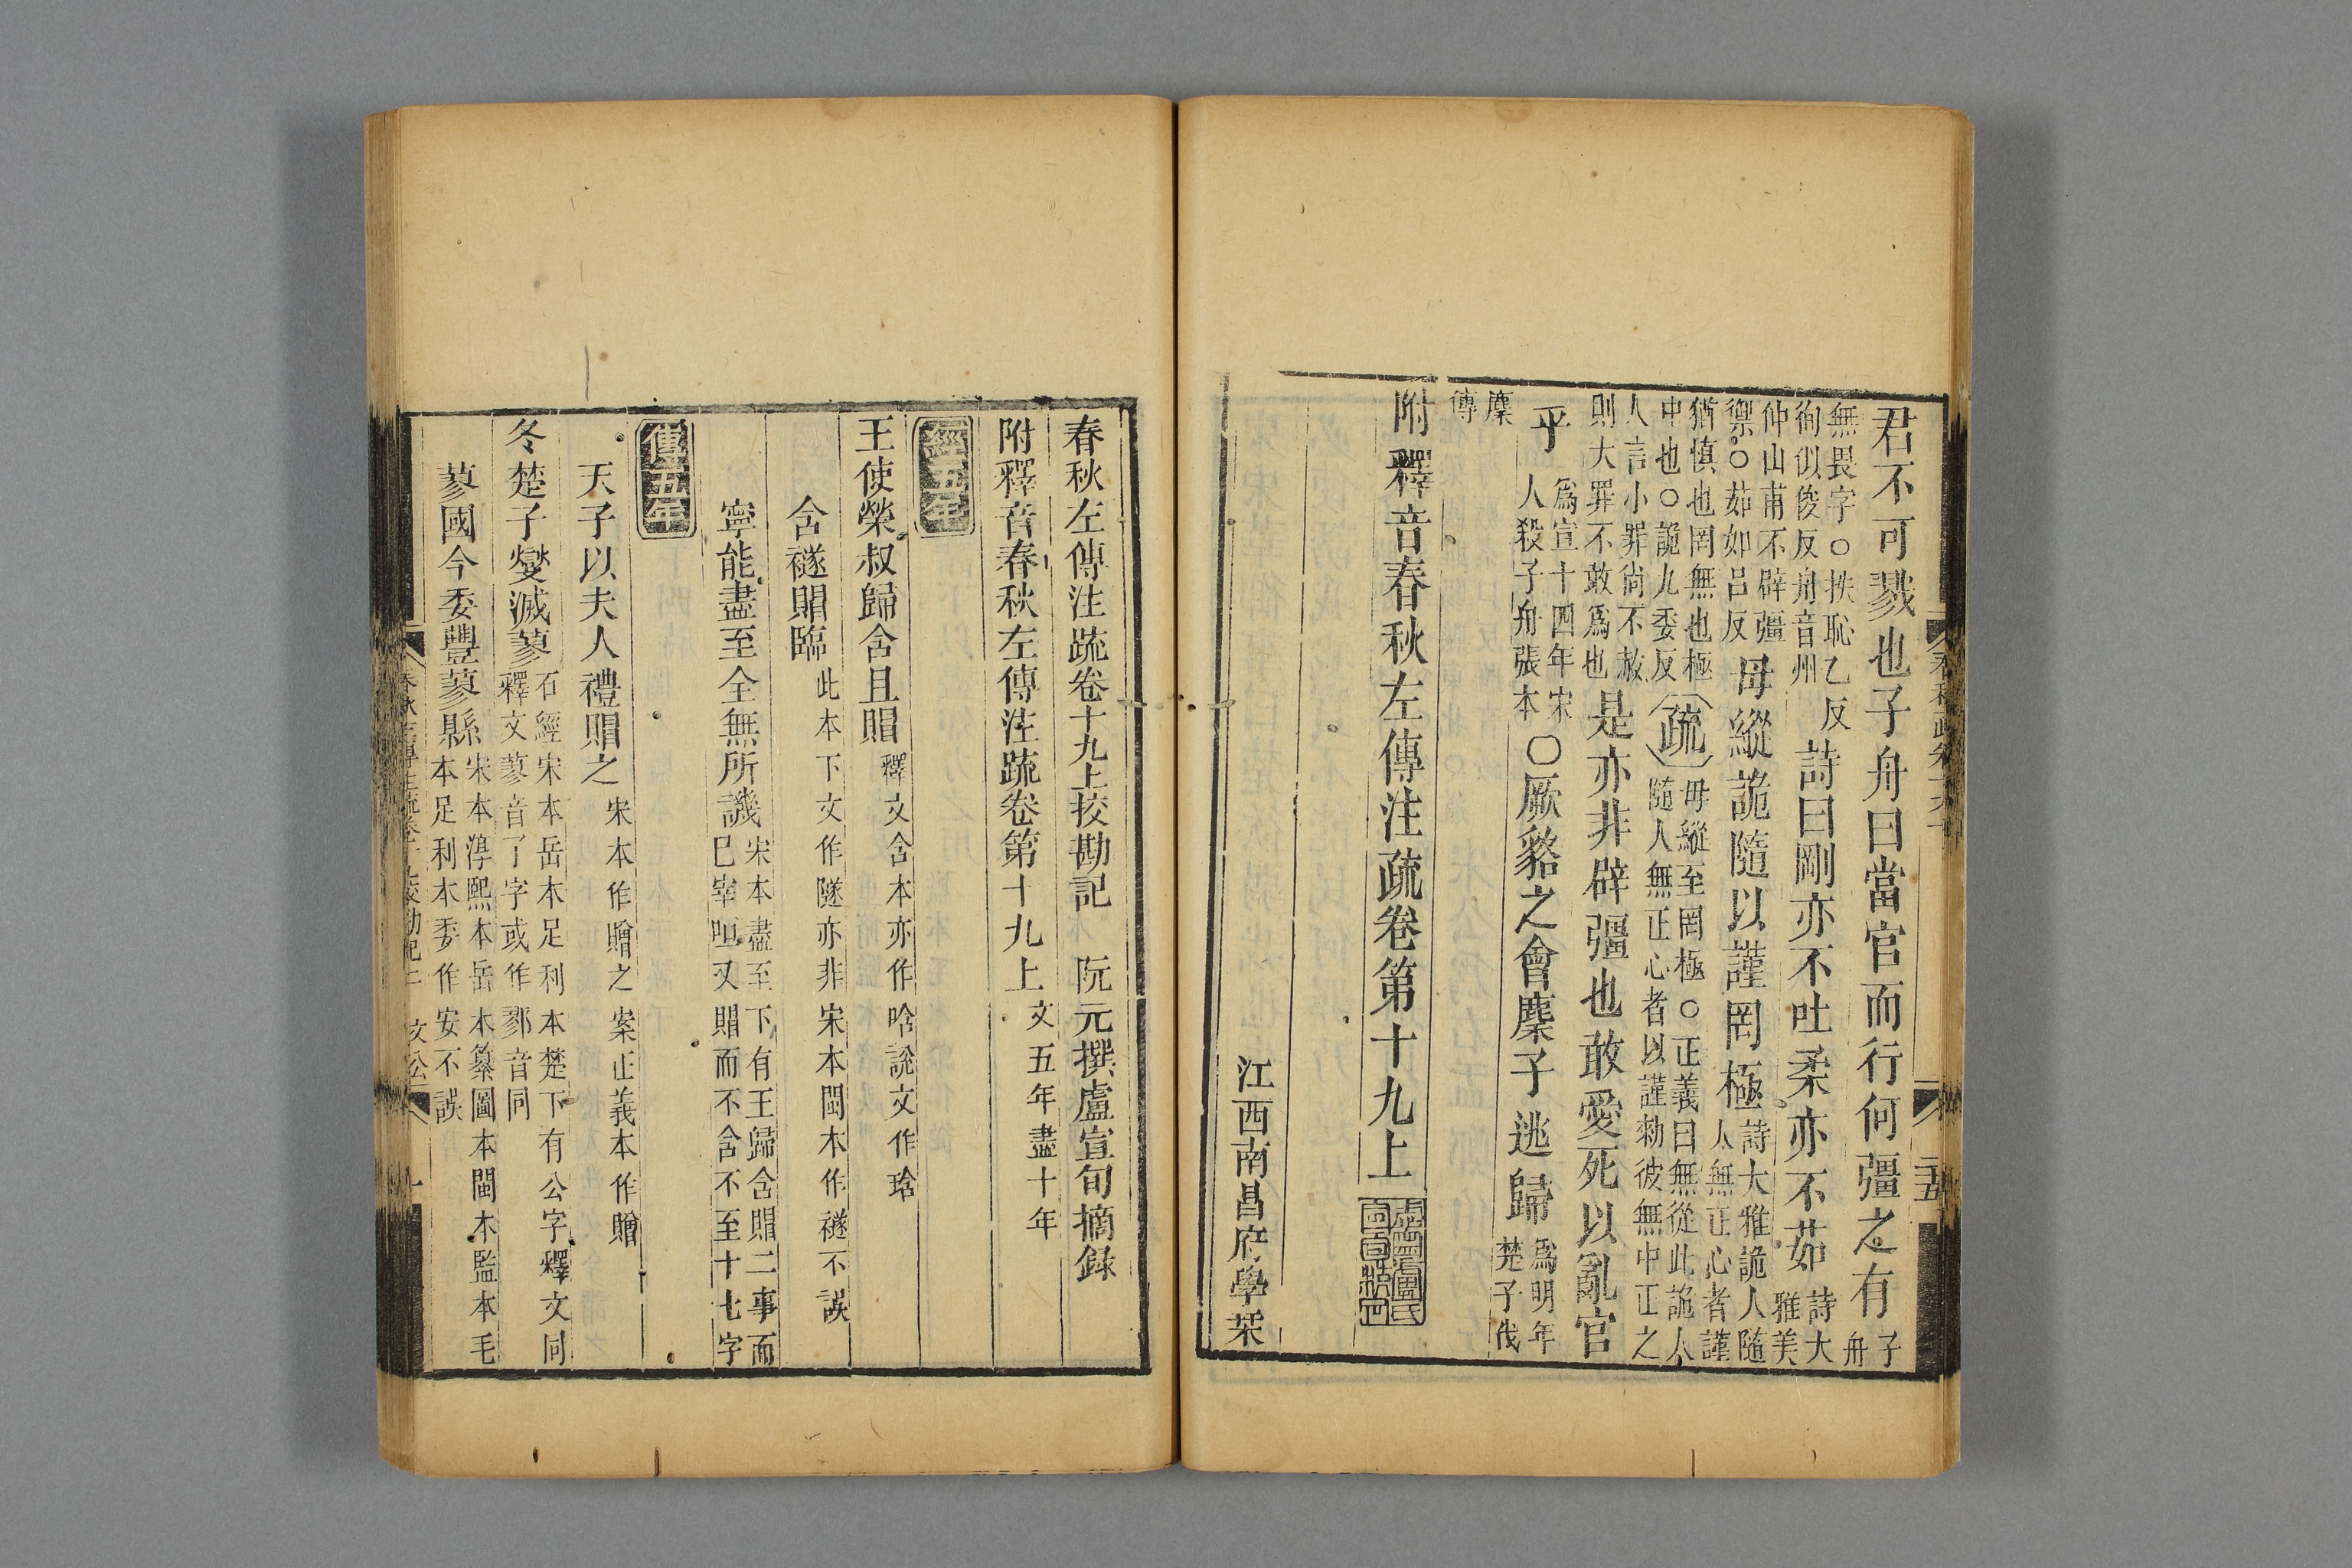 君不可戮也子舟曰當官而行何彊之有
子舟
無畏字○抶恥乙反
徇似俊反舟音州
詩曰剛亦不吐柔亦不茹
詩大雅美
仲山甫不辟彊
禦○茹如呂反
毋縱詭隨以謹罔極
詩大雅詭人隨
人無正心者謹
猶慎也罔無也極
中也○詭九委反
疏
毋縱至罔極○正義曰無從此詭人
隨人無正心者以謹勑彼無中正之
人言小罪尙不赦
則大罪不敢爲也
是亦非辟彊也敢愛死以亂官
乎
爲宣十四年宋
人殺子舟張本
○厥貉之會麇子逃歸
爲明年
楚子伐
麇
傳
附釋音春秋左傳注疏卷第十九上
江西南昌府學栞
春秋左傳注疏卷十九上挍勘記 阮元撰盧宣旬摘錄
附釋音春秋左傳注疏卷第十九上
文五年盡十年
經五年
王使榮叔歸含且賵
釋文含本亦作唅說文作琀
含襚賵臨
此本下文作隧亦非宋本閩本作襚不誤
寧能盡至全無所譏
宋本盡至下有王歸含賵二事而
巳宰咺又賵而不含不至十七字
傳五年
天子以夫人禮賵之
宋本作贈之案正義本作贈
冬楚子燮滅蓼
石經宋本岳本足利本楚下有公字釋文同
釋文蓼音了字或作鄝音同
蓼國今委豐蓼縣
宋本淳熙本岳本纂圖本閩本監本毛
本足利本委作安不誤